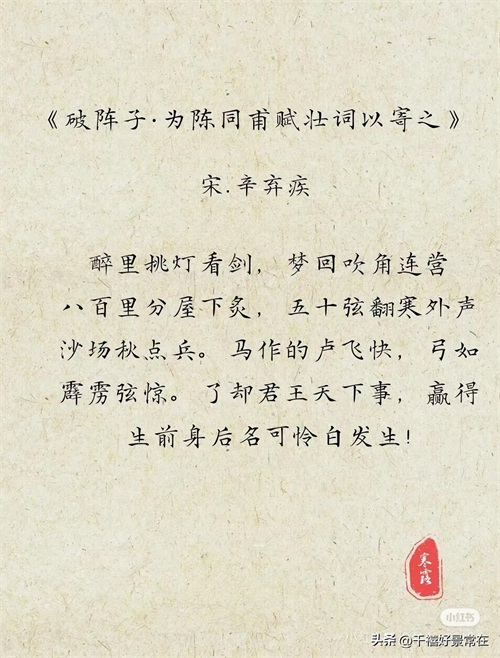 《破阵子·为陈同甫赋壮词以寄之》
宋.辛弃疾
醉里挑灯看剑，梦回吹角连营
八百里分屋下炙，五十弦翻寒外声
沙场秋点兵。马作的卢飞快，弓如
霹雳弦惊。了却君王天下事，赢得
生前身后名可怜白发生!
寒露
小红书
头条@千禧好景常在